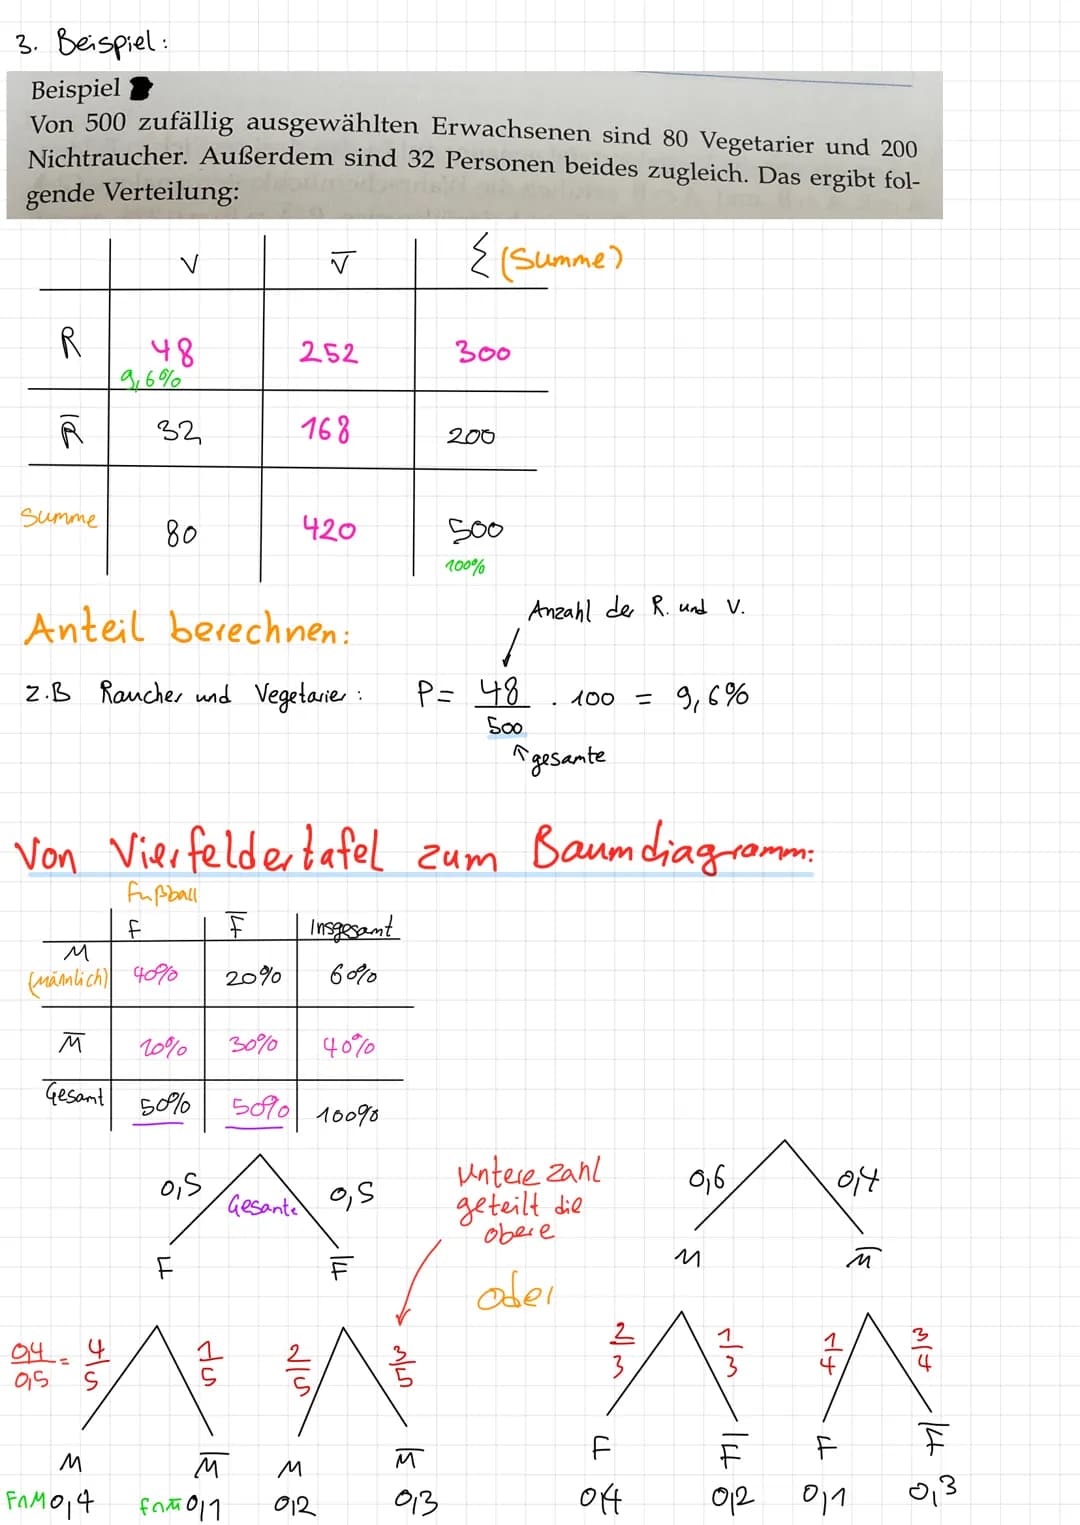 3. Beispiel:
Beispiel
Von 500 zufällig ausgewählten Erwachsenen sind 80 Vegetarier und 200
Nichtraucher. Außerdem sind 32 Personen beides zugleich. Das ergibt fol-
gende Verteilung:
V V̅ Σ (Summe)
R 48 252 300
9,6%
R̅ 32 168 200
Summe 80 420 500
100%
Anzahl der R. und V.
Anteil berechnen:
z.B Raucher und Vegetarier: P= 48/500 · 100 = 9,6%
↑gesamte
Von Vierfeldertafel zum Baumdiagramm:
Fußball
F F̅ Insgesamt
M
(männlich) 40% 20% 60%
M̅ 10% 30% 40%
Gesamt 50% 50% 100%
0,5 Gesamte 0,5
Untere Zahl
geteilt die
obere
0,6 0,4
F F̅
M M̅
oder
0,4/0,5 = 4/5 1/5 2/5 3/5
2/3 1/3 1/4 3/4
M M̅ M M̅
F F̅ F F̅
F∩M 0,4 F∩M̅ 0,1 0,2 0,3
0,4 0,2 0,1 0,3